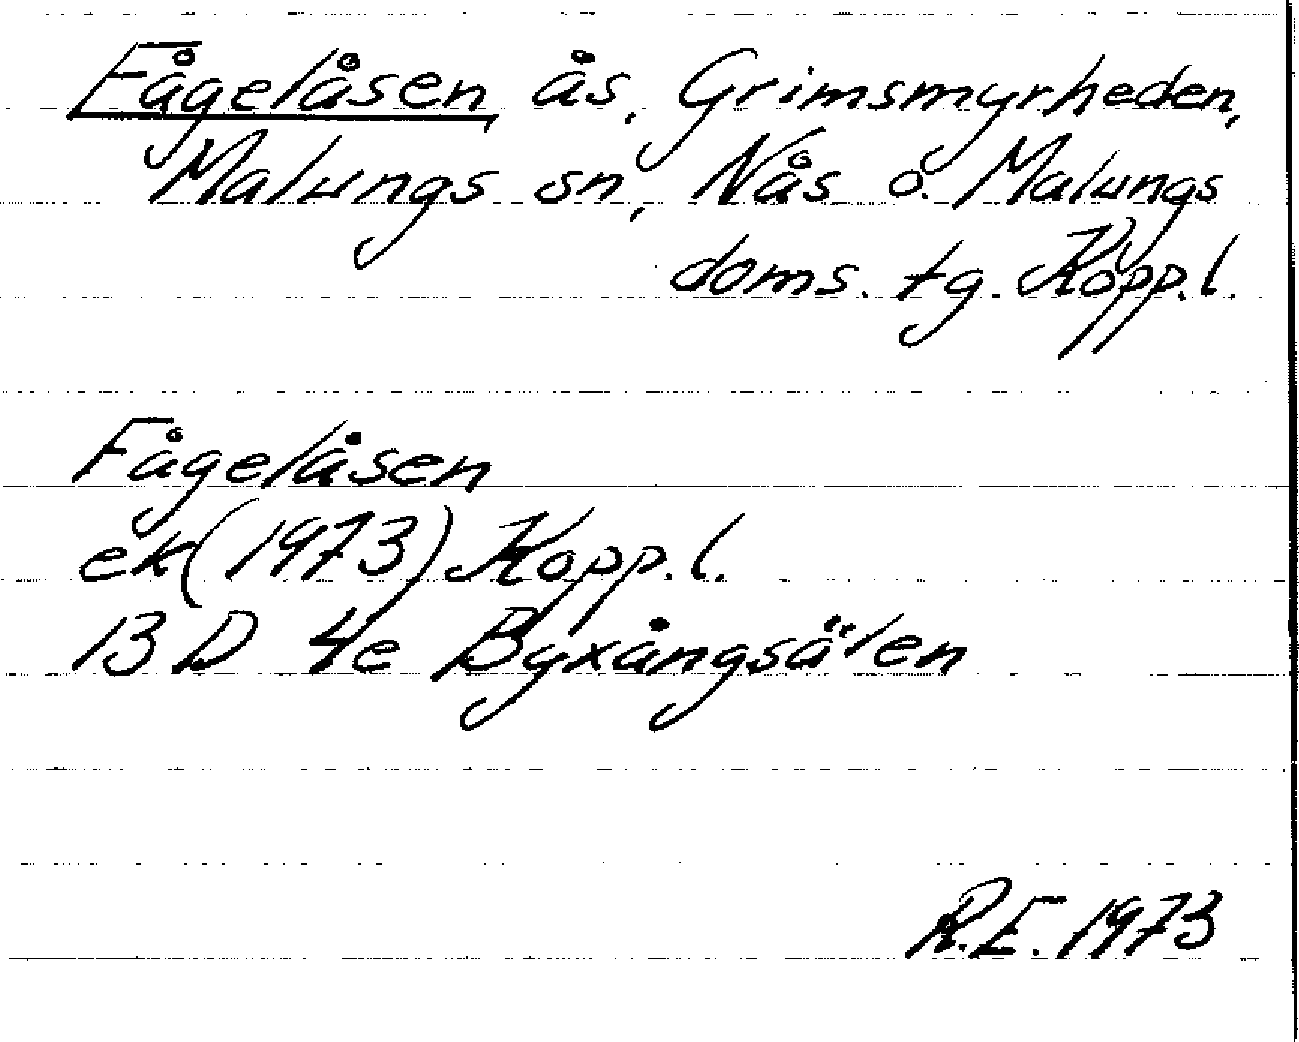 Fågelåsen, ås, Grimsmyrheden,
Malungs sn, Nås o. Malungs
doms. tg. Kopp.l.
Fågelåsen
ek(1973) Kopp.l.
13D 4e Byxångsälen
R.E. 1973